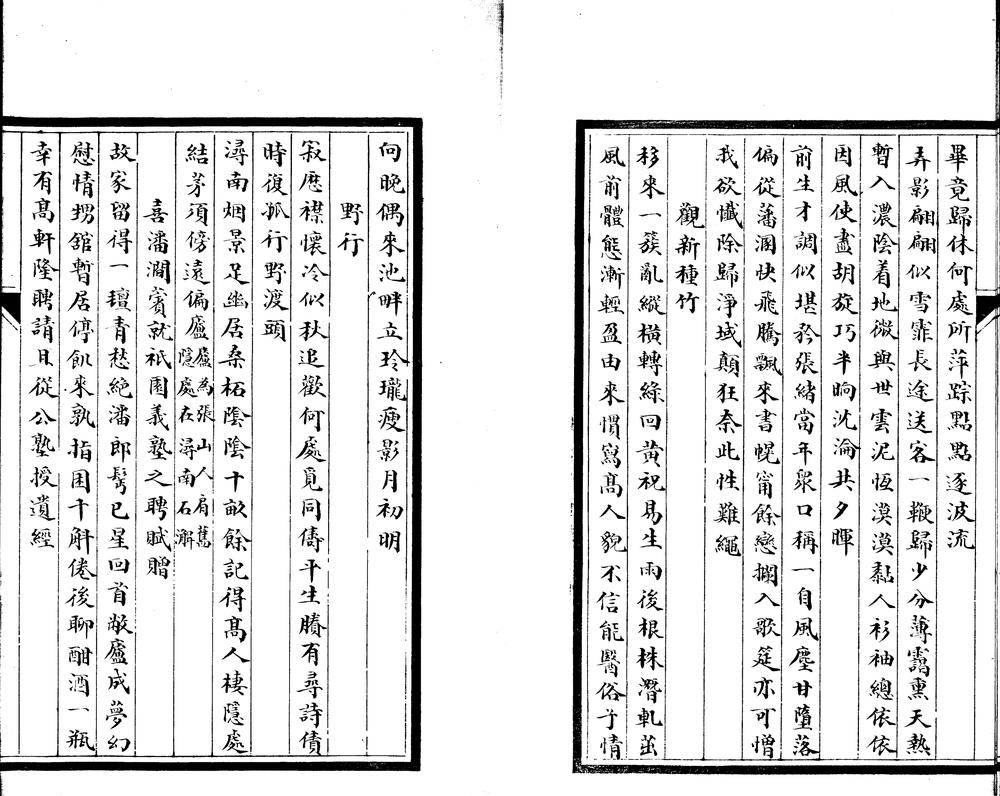 畢竟歸休何處所萍踪點點逐波流
弄影翩翩似雪霏長途送客一鞭歸少分薄靄熏天熱
暫入濃陰着地微與世雲泥恆漠漠黏人衫袖總依依
因風使盡胡旋巧半晌沈淪共夕暉
前生才調似堪矜張緒當年衆口稱一自風塵甘墮落
偏從藩溷快飛騰飄來書幌甯餘戀攔入歌筵亦可憎
我欲懺除歸淨域顛狂奈此性難繩
觀新種竹
移來一簇亂縱橫轉綠回黃祝易生雨後根株潛軋茁
風前體態漸輕盈由來慣寫高人貌不信能醫俗子情
向晚偶來池畔立玲瓏瘦影月初明
野行
寂歷襟懷冷似秋追歡何處覓同儔平生賸有尋詩債
時復孤行野渡頭
潯南烟景足幽居桑柘陰陰十畝餘記得高人棲隱處
結茅須傍遠偏廬廬為張山人肩舊隱處在潯南石瀨
喜潘瀾賓就祇園義塾之聘賦贈
故家留得一氊青愁絶潘郎鬢已星回首敝廬成夢幻
慰情甥舘暫居停飢來孰指囷千斛倦後聊酣酒一瓶
幸有高軒隆聘請且從公塾授遺經